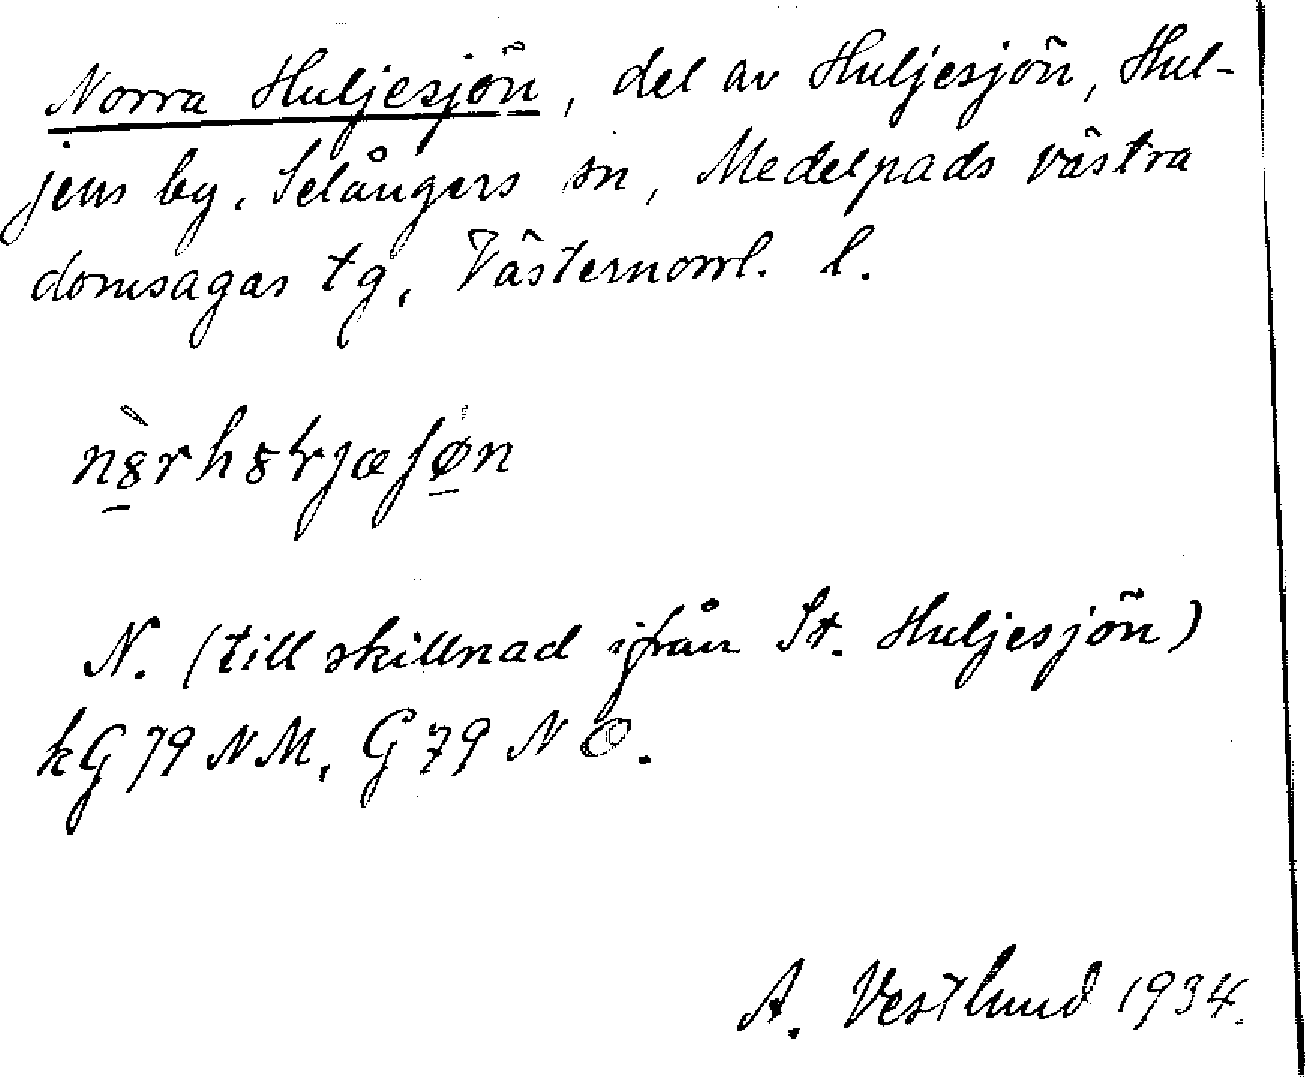 Norra Huljesjön, del av Huljesjön, Hul-
jens by, Selångers sn, Medelpads västra
domsagas tg, Västernorrl. l.
N. (till skillnad ifrån St. Huljesjön)
kG 79 NM, G 79 N O.
A. Vestlund 1934.